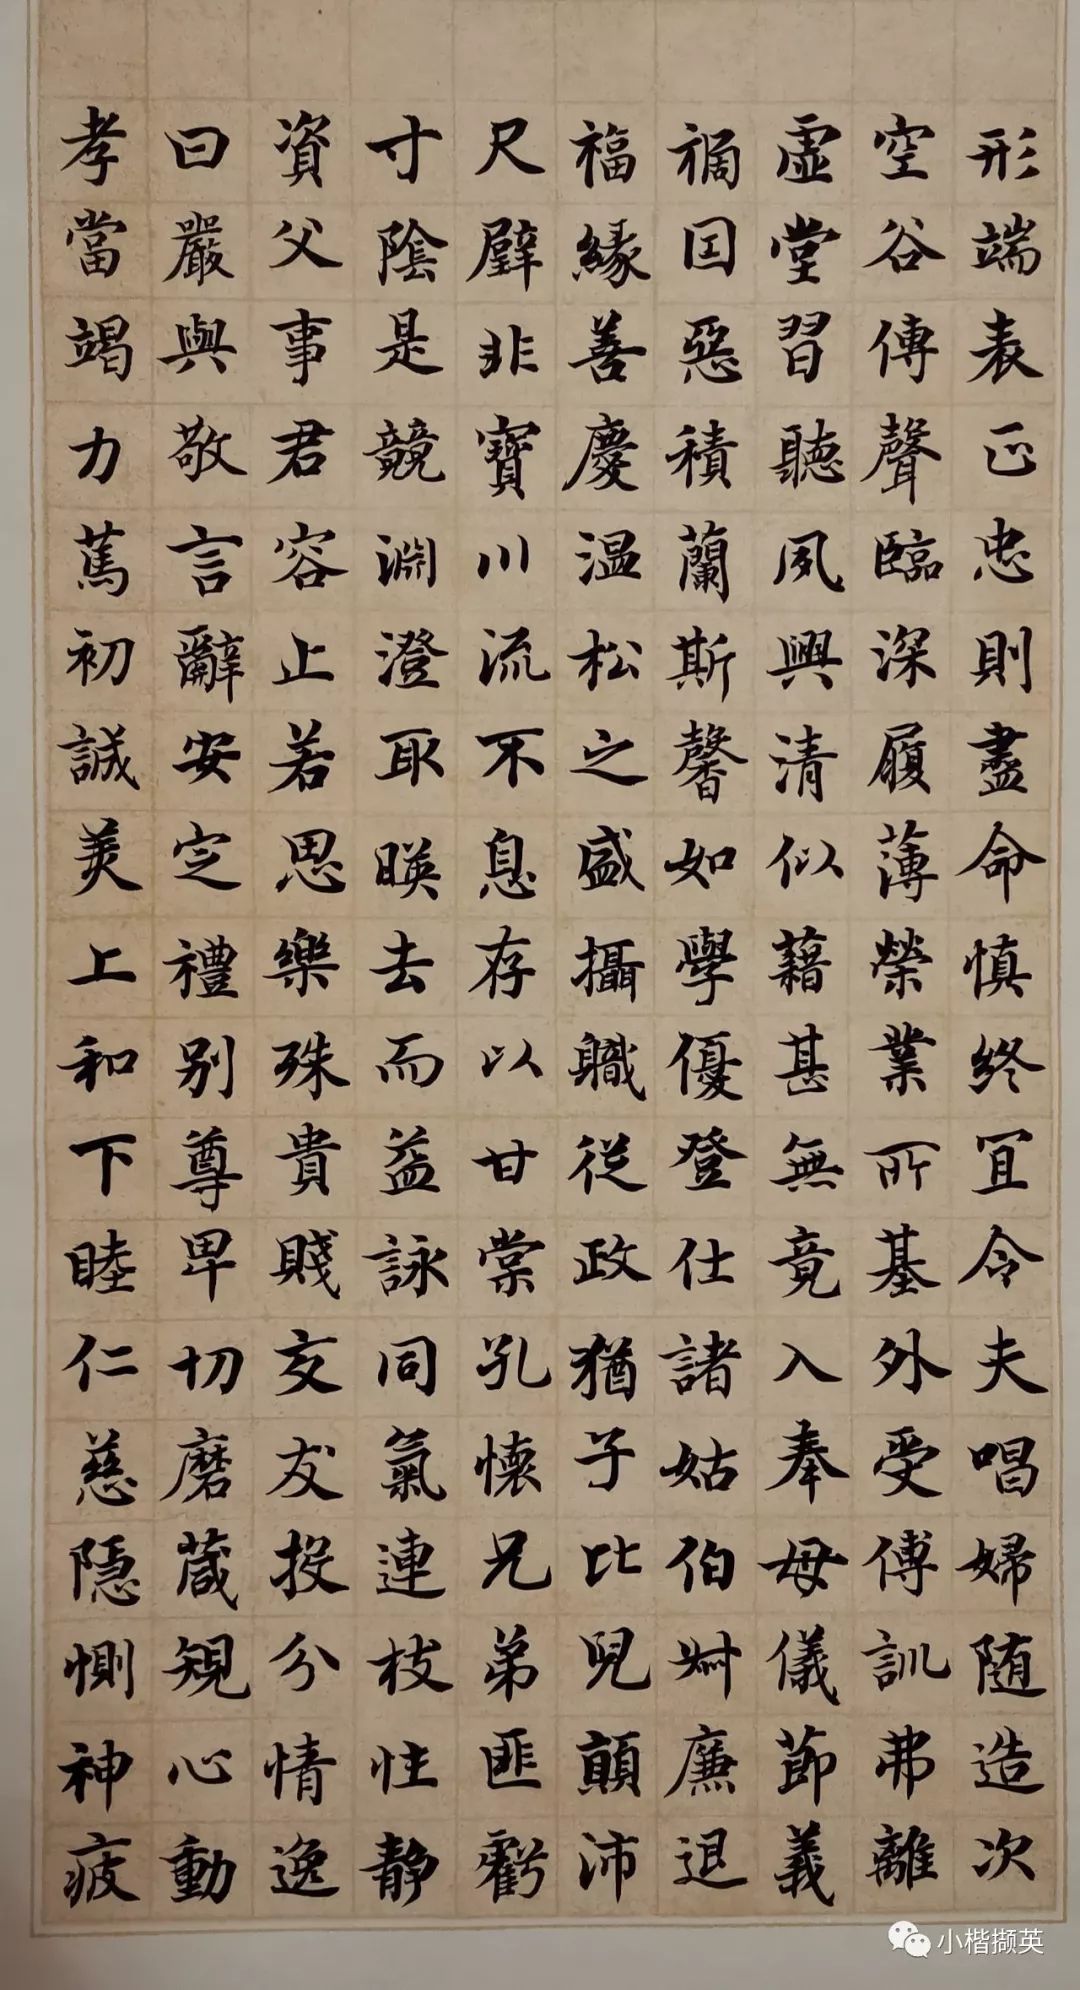 形端表正忠則盡命慎終宜令夫唱婦随造次
空谷傳聲臨深履薄榮業所基外受傅訓弗離
虛堂習聽夙興清似藉甚無竟入奉母儀節義
禍因惡積蘭斯馨如學優登仕諸姑伯叔廉退
福緣善慶温松之盛攝職從政猶子比兒顛沛
尺璧非寶川流不息存以甘棠孔懷兄弟匪虧
寸陰是競淵澄取暎去而益詠同氣連枝性静
資父事君容止若思樂殊貴賤交友投分情逸
曰嚴與敬言辭安定禮别尊卑切磨箴規心動
孝當竭力篤初誠美上和下睦仁慈隱惻神疲
小楷撷英